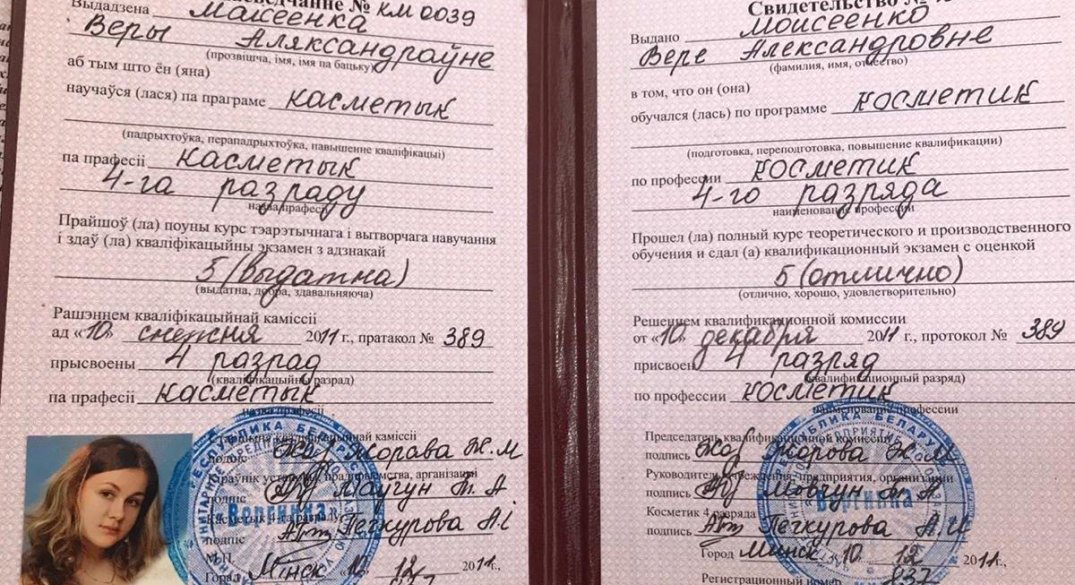 Выдадзена Моисеенка № КМ 0039
Веры Аляксандраўне
(прозвішча, імя, імя па бацьку)
аб тым што ён (яна)
научаўся (лася) па праграме касметык
(падрыхтоўка, перападрыхтоўка, павышенне кваліфікацыі)
па прафесіі касметык
4-га разраду
назва прафесіі
Прайшоў (ла) поуны курс тэарэтычнага і вытворчага навучання
і здаў (ла) кваліфікацыйны экзамен з адзнакай
5 (выдатна)
(выдатна, добра, здавальняюча)
Рашэннем кваліфікацыйнай каміссіі
ад «10» снежня 2011 г., пратакол № 389
прысвоены 4 разрад
(кваліфікацыйны разрад)
па прафесіі касметык
назва прафесіі
Старшыня кваліфікацыйнай каміссіі
подпіс Жорава Ж.М
прадпрыемства, арганізацыі
подпіс Т. А
Касметык 4-га разраду
подпіс Печкурова А.І
М.П.
Горад Мінск 10 12 2011г.,
837
РЭСПУБЛІКА БЕЛАРУСЬ
Воргинка
Свидетельство №
Выдано Моисеенко
Вере Александровне
(фамилия, имя, отчество)
в том, что он (она)
обучался (лась) по программе косметик
(подготовка, переподготовка, повышение квалификации)
по профессии косметик
4-го разряда
наименование профессии
Прошел (ла) полный курс теоретического и производственного
обучения и сдал (а) квалификационный экзамен с оценкой
5 (отлично)
(отлично, хорошо, удовлетворительно)
Решением квалификационной комиссии
от «10» декабря 2011 г., протокол № 389
присвоен 4 разряд
(квалификационный разряд)
по профессии косметик
наименование профессии
Председатель квалификационной комиссии
подпись Жорова Ж.М
Руководитель учреждения, предприятия, организации
подпись Мовчун Т. А
Косметик 4 разряда
подпись Печкурова А.И
Город Минск 10 12 2011г.
Регистрационный номер 837
РЕСПУБЛИКА БЕЛАРУСЬ
Воргинка